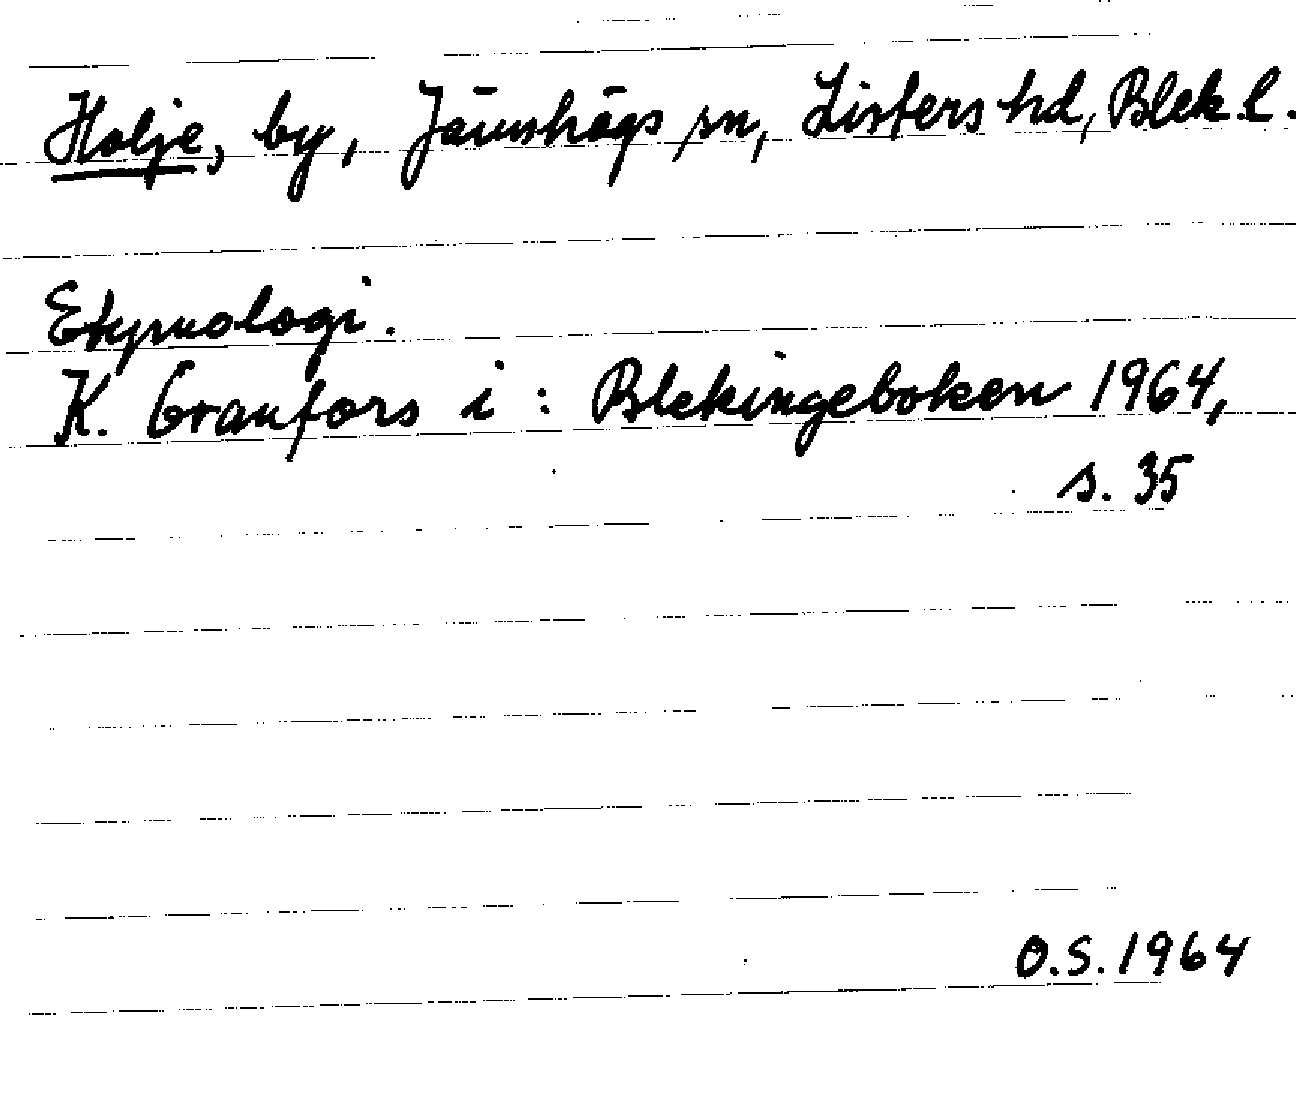 Holje, by, Jämshögs sn, Listers hd, Blek. l.
Etymologi.
K. Granfors i: Blekingeboken 1964,
s. 35
O.S. 1964